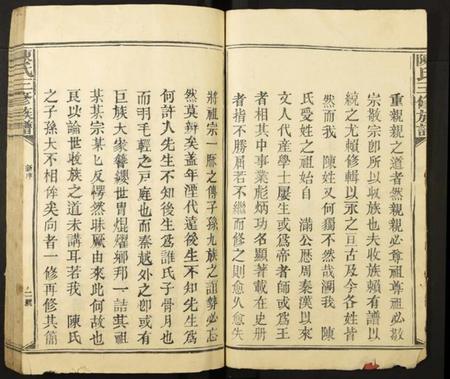 陳氏三修族譜
重親親之道者然親親必尊祖尊祖必敬
宗敬宗即所以收族也夫收族賴有譜以
統之尤賴修輯以永之亘古及今各姓皆
然而我 陳姓又何獨不然哉溯我 陳
氏受姓之祖始自 滿公歷周秦漢以來
文人代產學士屢生或為帝者師或為王
者相其中事業彪炳功名顯著載在史册
者指不勝屈若不繼而修之則愈久愈失
將祖宗一脈之傳子孫九族之誼勢必忘
然莫辨矣蓋年湮代遠後生不知先生為
何許人先生不知後生為誰氏子骨月也
而明毛輕之戸庭也而秦越外之卽或有
巨族大家簪纓世冑焜燿鄉邦一詰其祖
某某宗某某反愕然昧厥由來此何故也
良以論世收族之道未講耳若我 陳氏
之子孫大不相侔矣向者一修再修其簡
陳氏三修族譜
新序
二